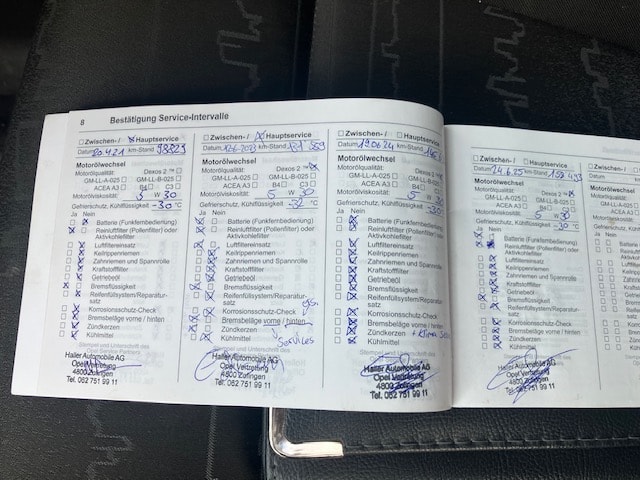 8 Bestätigung Service-Intervalle
Zwischen-/ Hauptservice
Datum 20.4.21 km-Stand 98823
Motorölwechsel
Motorölqualität: Dexos 2 ™
GM-LL-A-025 GM-LL-B-025
ACEA A3 B4 C3
Motorölviskosität: 5 W 30
Gefrierschutz, Kühlflüssigkeit -30 °C
Ja Nein
Batterie (Funkfernbedienung)
Reinluftfilter (Pollenfilter) oder
Aktivkohlefilter
Luftfiltereinsatz
Keilrippenriemen
Zahnriemen und Spannrolle
Kraftstofffilter
Getriebeöl
Bremsflüssigkeit
Reifenfüllsystem/Reparatur-
satz
Korrosionsschutz-Check
Bremsbeläge vorne / hinten
Zündkerzen
Kühlmittel
Haller Automobile AG
Opel Vertretung
4800 Zofingen
Tel. 062 751 99 11
Zwischen-/ Hauptservice
Datum km-Stand
Motorölwechsel
Motorölqualität: Dexos 2 ™
GM-LL-A-025 GM-LL-B-025
ACEA A3 B4 C3
Motorölviskosität: 5 W 30
Gefrierschutz, Kühlflüssigkeit -32 °C
Ja Nein
Batterie (Funkfernbedienung)
Reinluftfilter (Pollenfilter) oder
Aktivkohlefilter
Luftfiltereinsatz
Keilrippenriemen
Zahnriemen und Spannrolle
Kraftstofffilter
Getriebeöl
Bremsflüssigkeit
Reifenfüllsystem/Reparatur-
satz
Korrosionsschutz-Check
Bremsbeläge vorne / hinten
Zündkerzen Services
Kühlmittel
Haller Automobile AG
Opel Vertretung
4800 Zofingen
Tel. 062 751 99 11
Zwischen-/ Hauptservice
Datum 19.06.24 km-Stand
Motorölwechsel
Motorölqualität: Dexos 2 ™
GM-LL-A-025 GM-LL-B-025
ACEA A3 B4 C3
Motorölviskosität: 5 W 30
Gefrierschutz, Kühlflüssigkeit -30
Ja Nein
Batterie (Funkfernbedienung)
Reinluftfilter (Pollenfilter) oder
Aktivkohlefilter
Luftfiltereinsatz
Keilrippenriemen
Zahnriemen und Spannrolle
Kraftstofffilter
Getriebeöl
Bremsflüssigkeit
Reifenfüllsystem/Reparatur-
satz
Korrosionsschutz-Check
Bremsbeläge vorne / hinten
Zündkerzen + Klima
Kühlmittel
Haller Automobile AG
Opel Vertretung
4800 Zofingen
Tel. 062 751 99 11
Zwischen-/ Hauptservice
Datum km-Stand
Motorölwechsel
Motorölqualität: Dexos 2 ™
GM-LL-A-025 GM-LL-B-025
ACEA A3 B4 C3
Motorölviskosität: 5 W 30
Gefrierschutz, Kühlflüssigkeit -30 °C
Ja Nein
Batterie (Funkfernbedienung)
Reinluftfilter (Pollenfilter) oder
Aktivkohlefilter
Luftfiltereinsatz
Keilrippenriemen
Zahnriemen und Spannrolle
Kraftstofffilter
Getriebeöl
Bremsflüssigkeit
Reifenfüllsystem/Reparatur-
satz
Korrosionsschutz-Check
Bremsbeläge vorne / hinten
Zündkerzen
Kühlmittel
Haller Automobile AG
Opel Vertretung
4800 Zofingen
Tel. 062 751 99 11
Datum
Ja Nein